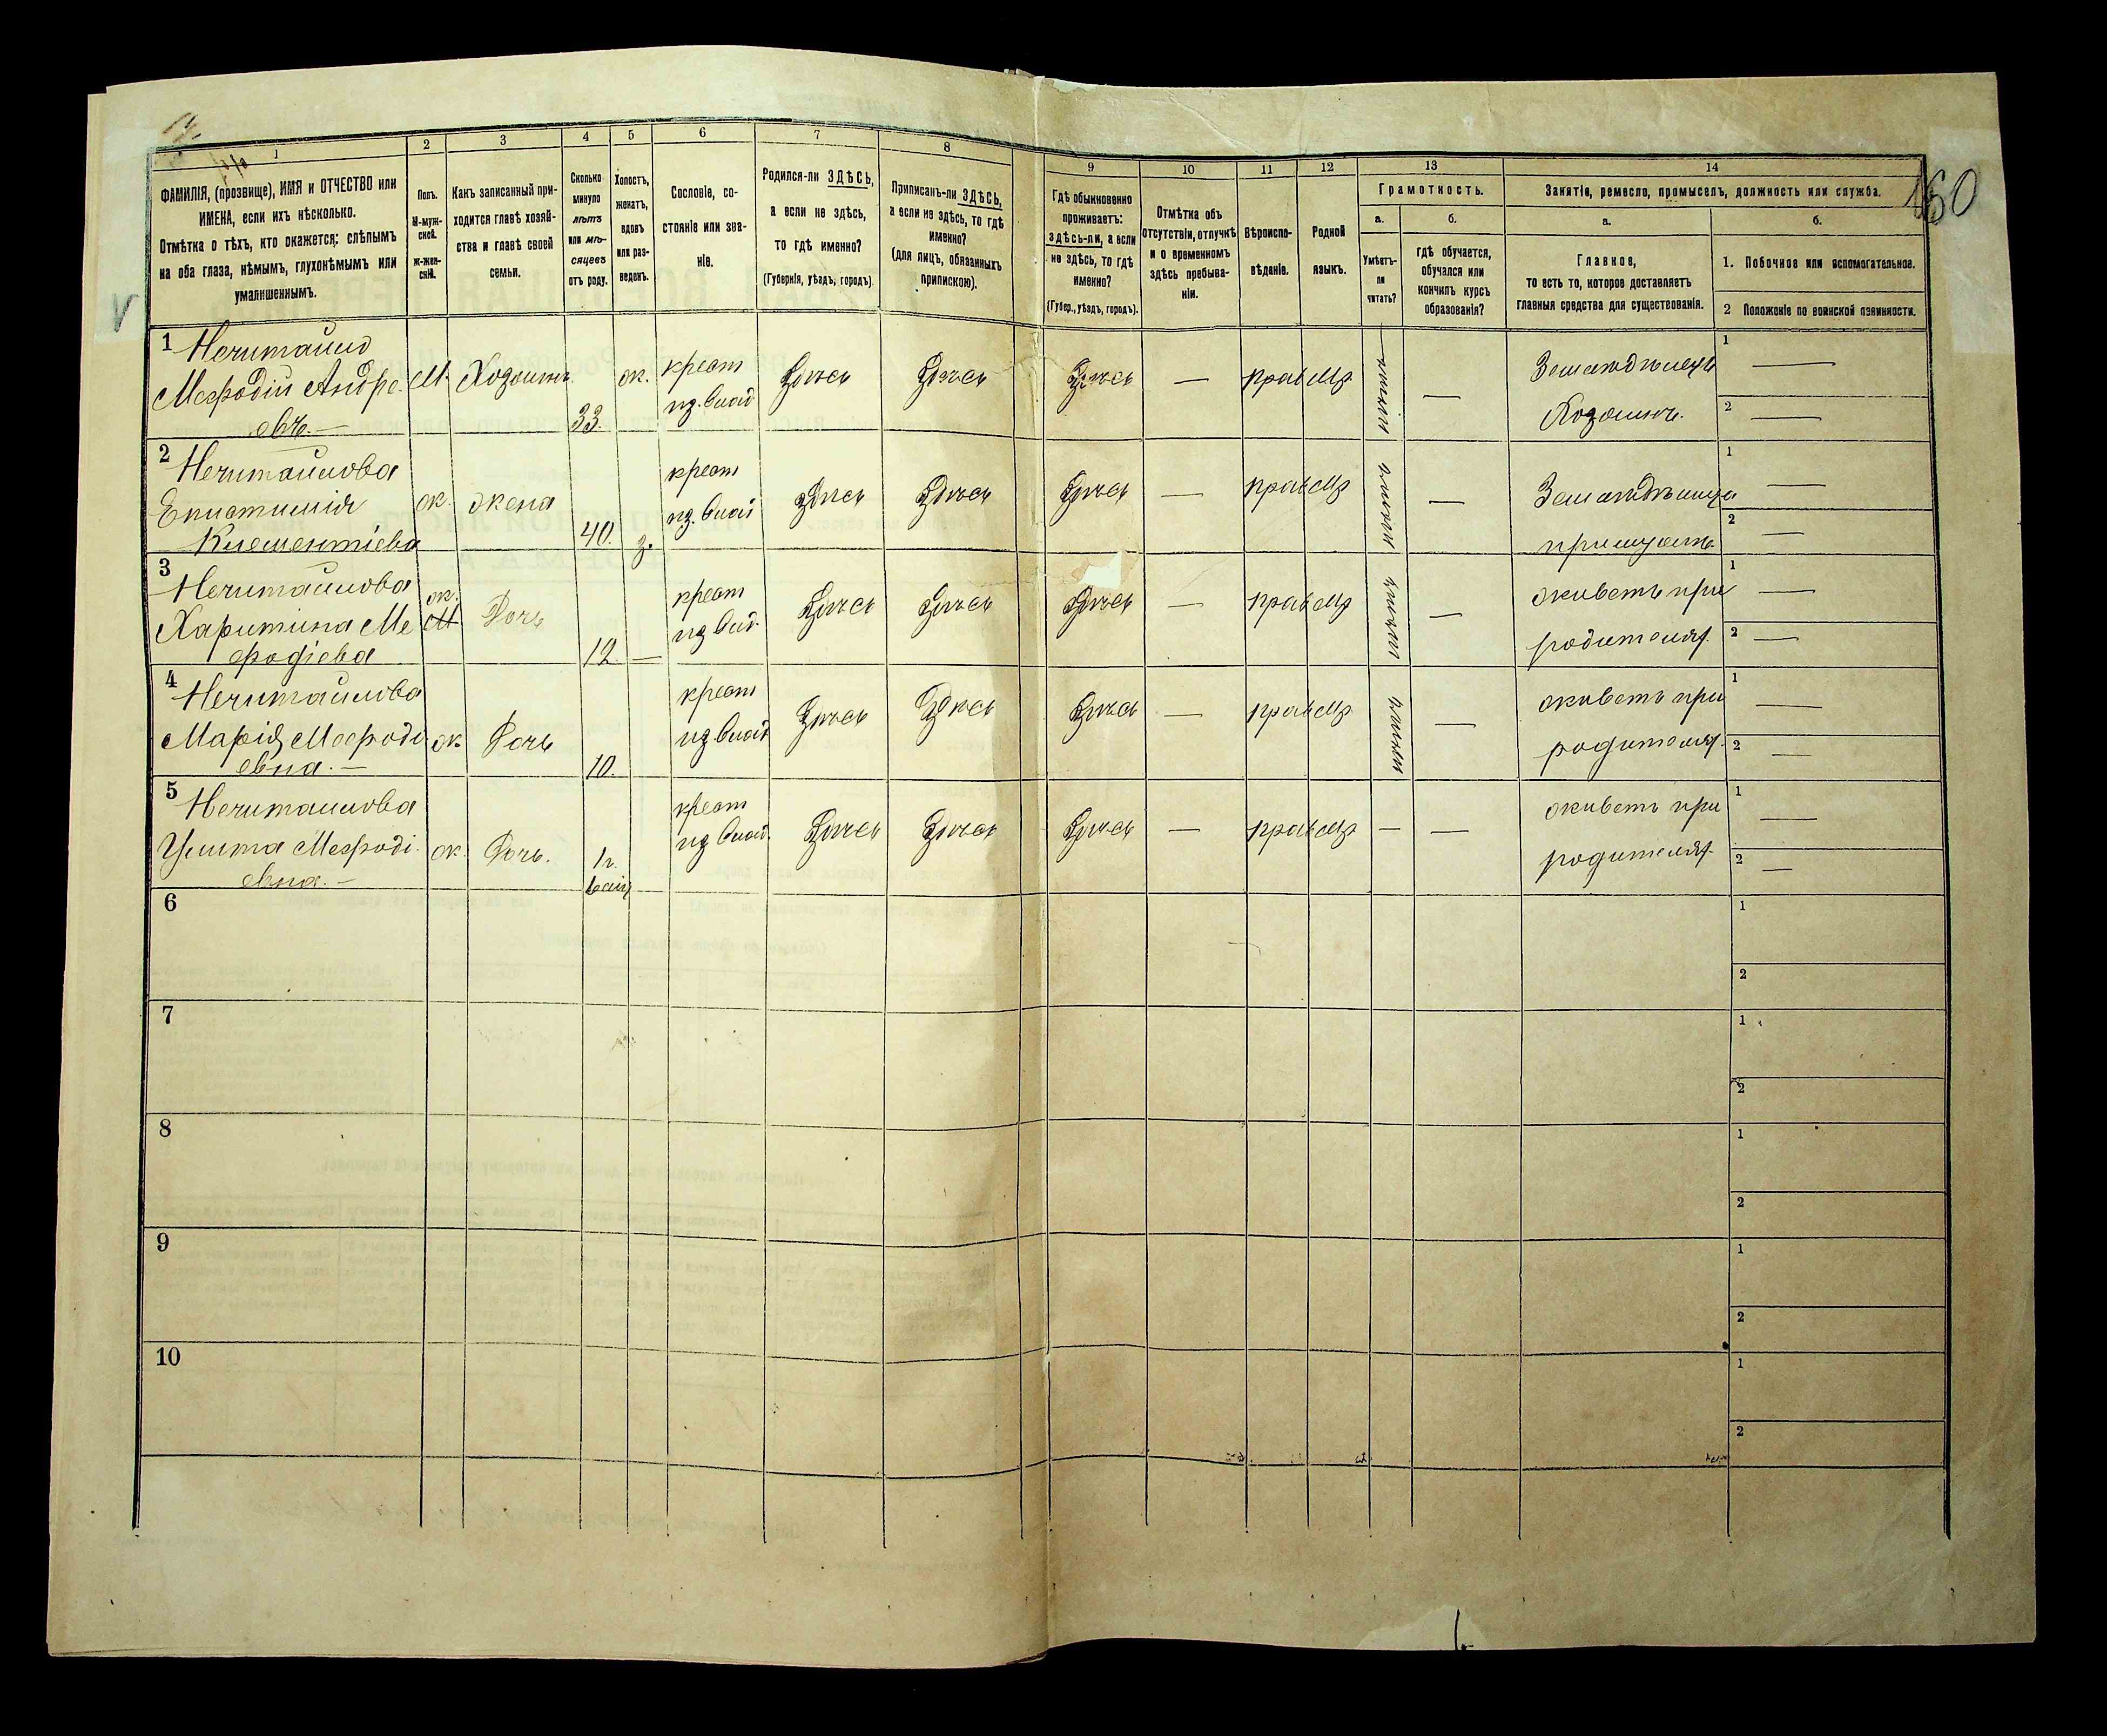 160
1
2
3
4
5
6
7
8
9
10
11
12
13
14
ФАМИЛІЯ, (прозвище), ИМЯ и ОТЧЕСТВО или
ИМЕНА, если ихъ нѣсколько.
Отмѣтка о тѣхъ, кто окажется: слѣпымъ
на оба глаза, нѣмымъ, глухонѣмымъ или
умалишеннымъ.
Полъ.
М-муж-
ской.
ж-жен-
скій.
Какъ записанный при-
ходится главѣ хозяй-
ства и главѣ своей
семьи.
Сколько
минуло
лѣтъ
или мѣ-
сяцевъ
отъ роду.
Холостъ,
женатъ,
вдовъ
или раз-
веденъ.
Сословіе, со-
стояніе или зва-
ніе.
Родился-ли ЗДѢСЬ,
а если не здѣсь,
то гдѣ именно?
(Губернія, уѣздъ, городъ).
Приписанъ-ли ЗДѢСЬ,
а если не здѣсь, то гдѣ
именно?
(для лицъ, обязанныхъ
припискою).
Гдѣ обыкновенно
проживаетъ:
здѣсь-ли, а если
не здѣсь, то гдѣ
именно?
(Губер., уѣздъ, городъ).
Отмѣтка объ
отсутствіи, отлучкѣ
и о временномъ
здѣсь пребыва-
ніи.
Вѣроиспо-
вѣданіе.
Родной
языкъ.
Грамотность.
а.
б.
Умѣетъ-
ли
читать?
гдѣ обучается,
обучался или
кончилъ курсъ
образованія?
Занятіе, ремесло, промыселъ, должность или служба.
а.
б.
Главное,
то есть то, которое доставляетъ
главныя средства для существованія.
1. Побочное или вспомогательное.
2 Положеніе по воинской повинности.
1 Нечитайло
Мефодій Андре-
евъ. — М. Хозяинъ 33. ж. крест из. влад Здѣсь Здѣсь Здѣсь — прав мр. — Земледѣлецъ
Хозяинъ. 1 — 2 —
2 Нечитайлова
Климентіева ж. жена 40. з. крест из. влад Здѣсь Здѣсь Здѣсь — прав мр — 1 — 2 —
3 Нечитайлова
Харитина Ме
фодіева ж. М Дочь 12. — крест из влад. Здѣсь Здѣсь Здѣсь — прав мр — живетъ при
родителях. 1 — 2 —
4 Нечитайлова
Марія Мефоді
евна. — ж Дочь 10. крест из влад Здѣсь Здѣсь Здѣсь — прав мр — живетъ при
родителях. 1 — 2 —
5 Нечитайлова
Улита Мефоді-
евна. — ж. Дочь. 1 г. крест из влад. Здѣсь Здѣсь Здѣсь — прав мр — — живетъ при
родителях. 1 — 2 —
6 1
2
7 1
2
8 1
2
9 1
2
10 1
2